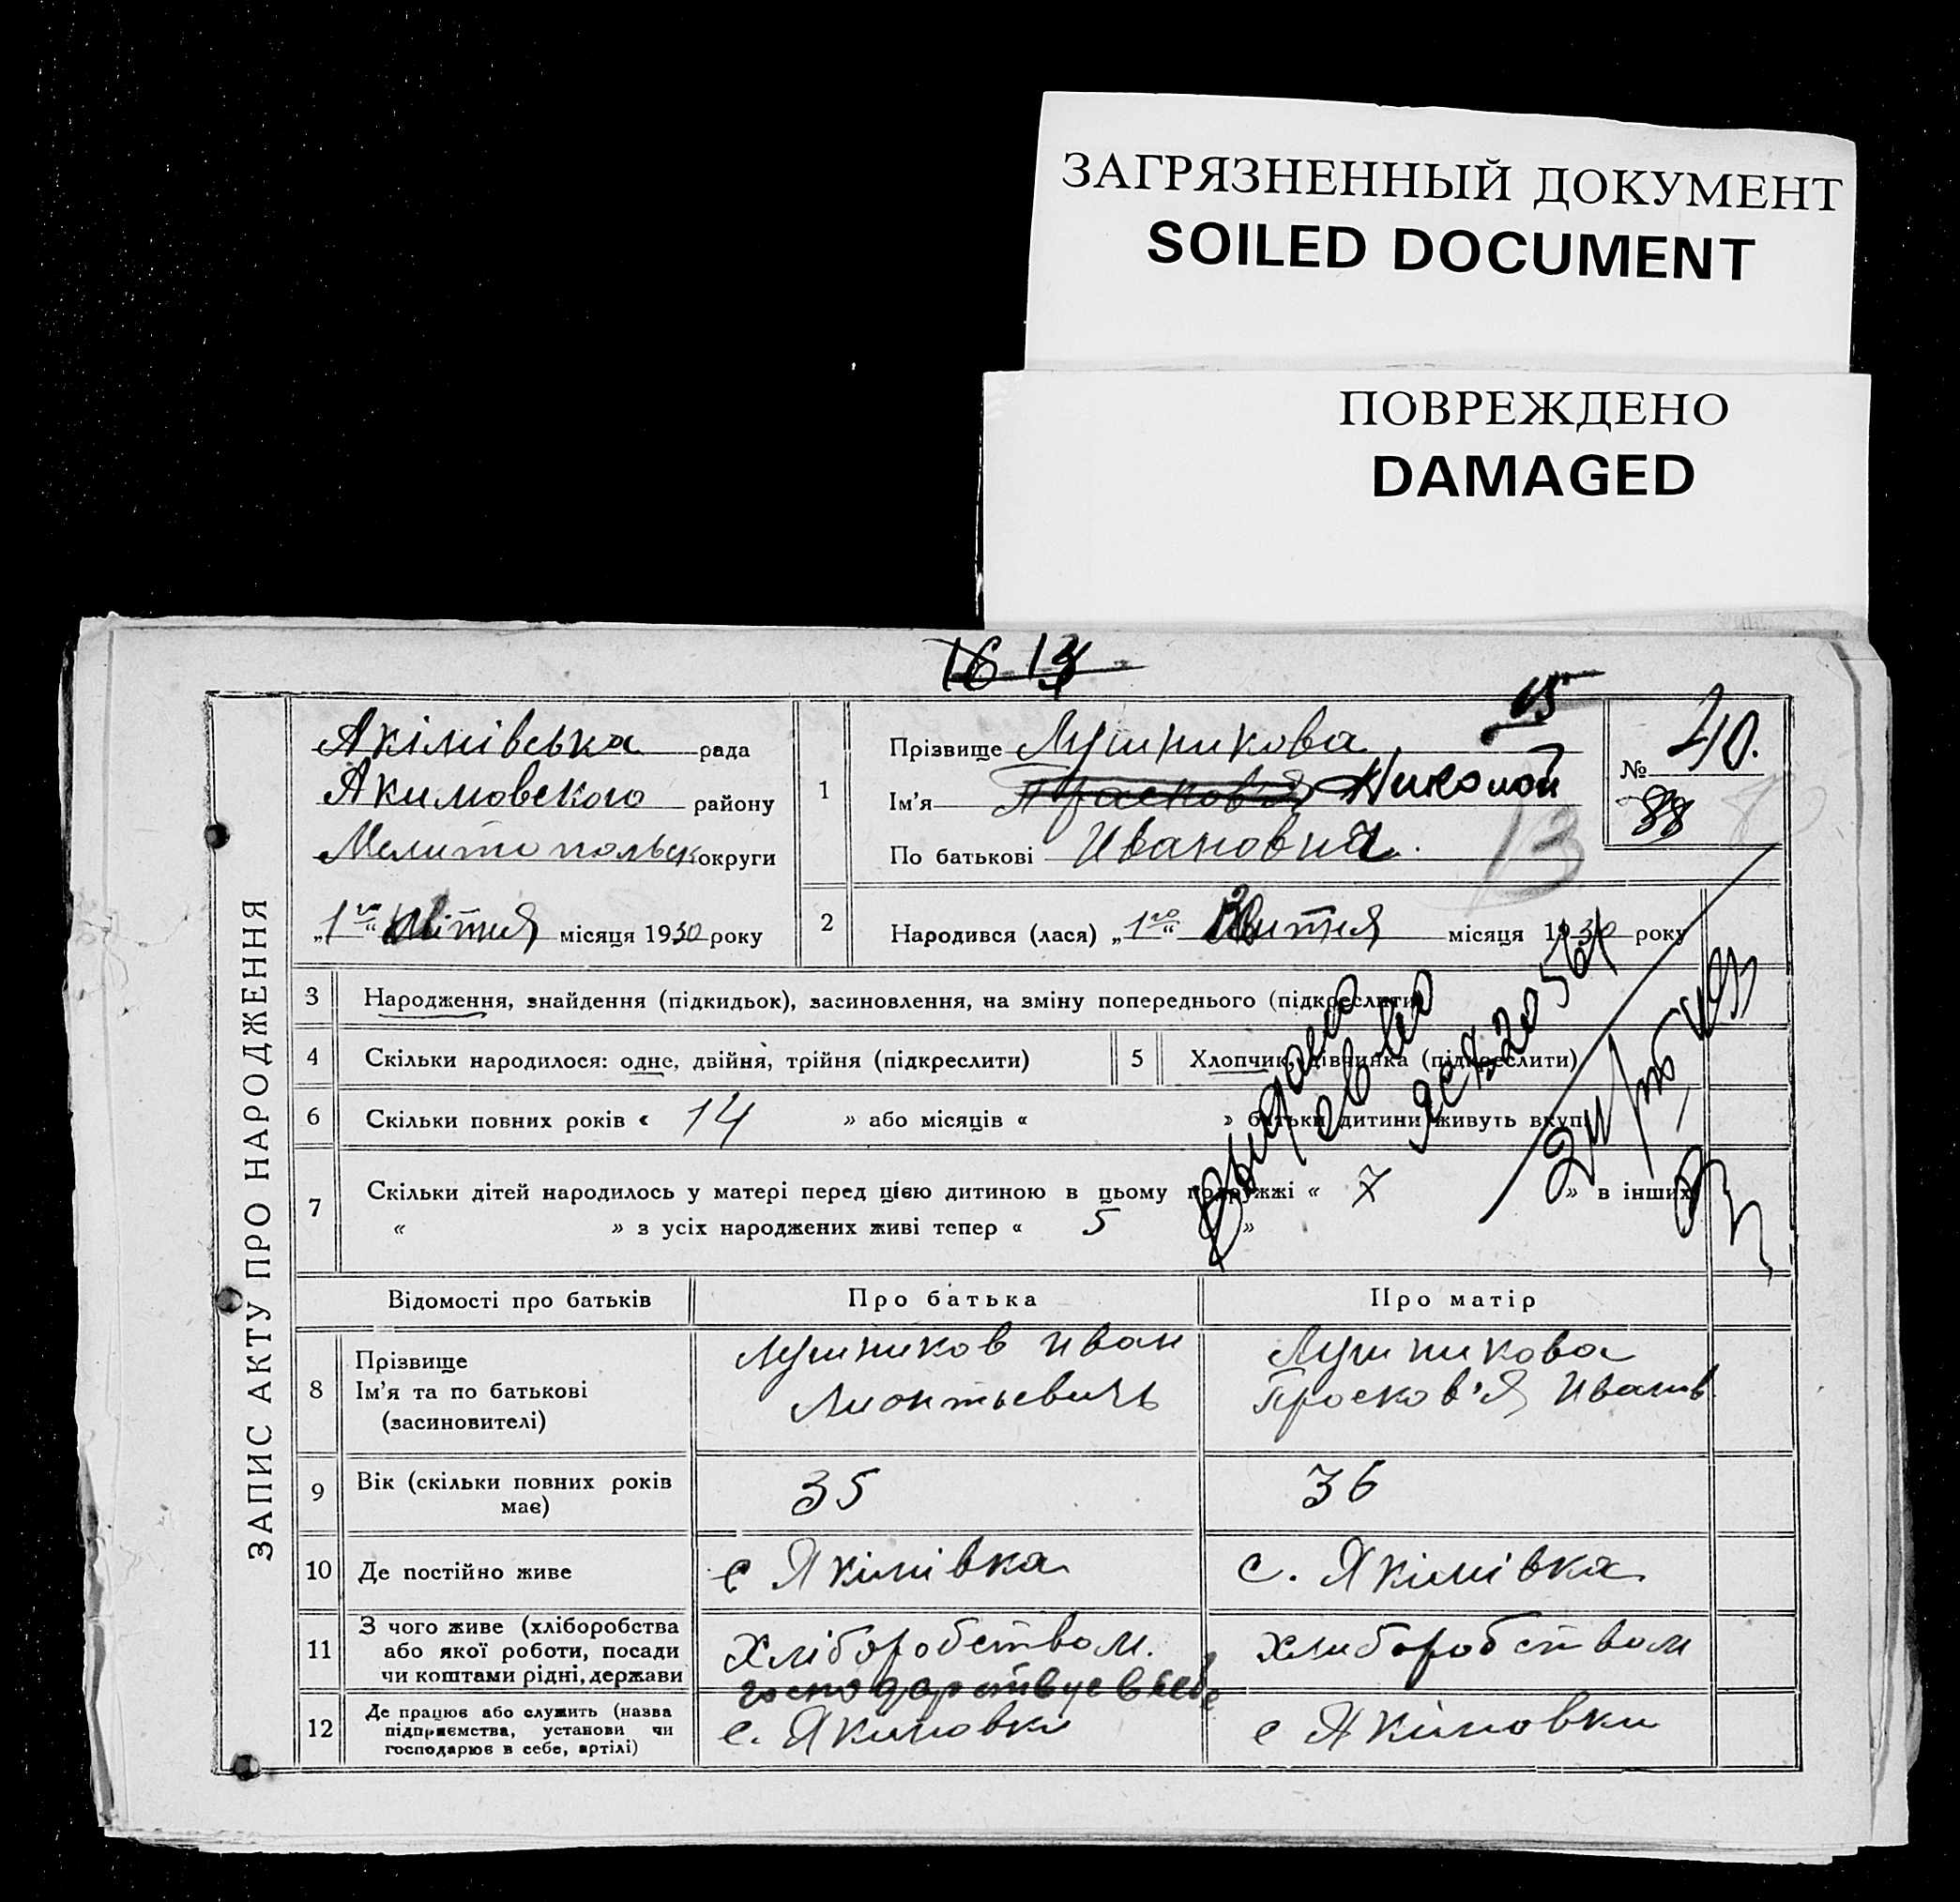 ЗАГРЯЗНЕННЫЙ ДОКУМЕНТ
SOILED DOCUMENT
ПОВРЕЖДЕНО
DAMAGED
16 13
ЗАПИС АКТУ ПРО НАРОДЖЕННЯ
Акімівська рада
Акимовского району
Мелитопольск округи
„1го“ Квітня місяця 1930 року
1
Прізвище Лушникова
Ім'я Прасков'я Николай
По батькові Ивановна.
№ 40.
38
13
2
Народився (лася) „1го“ Квитня місяця 1930 року
3 Народження, знайдення (підкидьок), засиновлення, на зміну попереднього (підкреслити)
4 Скільки народилося: одне, двійня, трійня (підкреслити)
5 Хлопчик, дівчинка (підкреслити)
6 Скільки повних років « 14 » або місяців « » батьки дитини живуть вкупі
7 Скільки дітей народилось у матері перед цією дитиною в цьому подружжі « 7 » в інших
« » з усіх народжених живі тепер « 5 »
Выдано
Відомості про батьків Про батька Про матір
8 Прізвище
Ім'я та по батькові
(засиновителі)
Лушников Иван
Лионтьевичь
Лушникова
Просков'я Иванів
9 Вік (скільки повних років має) 35 36
10 Де постійно живе с Якімівка с. Якімівка
11 З чого живе (хліборобства
або якої роботи, посади
чи коштами рідні, держави
Хліборобством.
хлиборобством
12 Де працює або служить (назва
підприємства, установи чи
господарює в себе, артілі)
господарствує в себе
с. Якимовки
с Якімовки